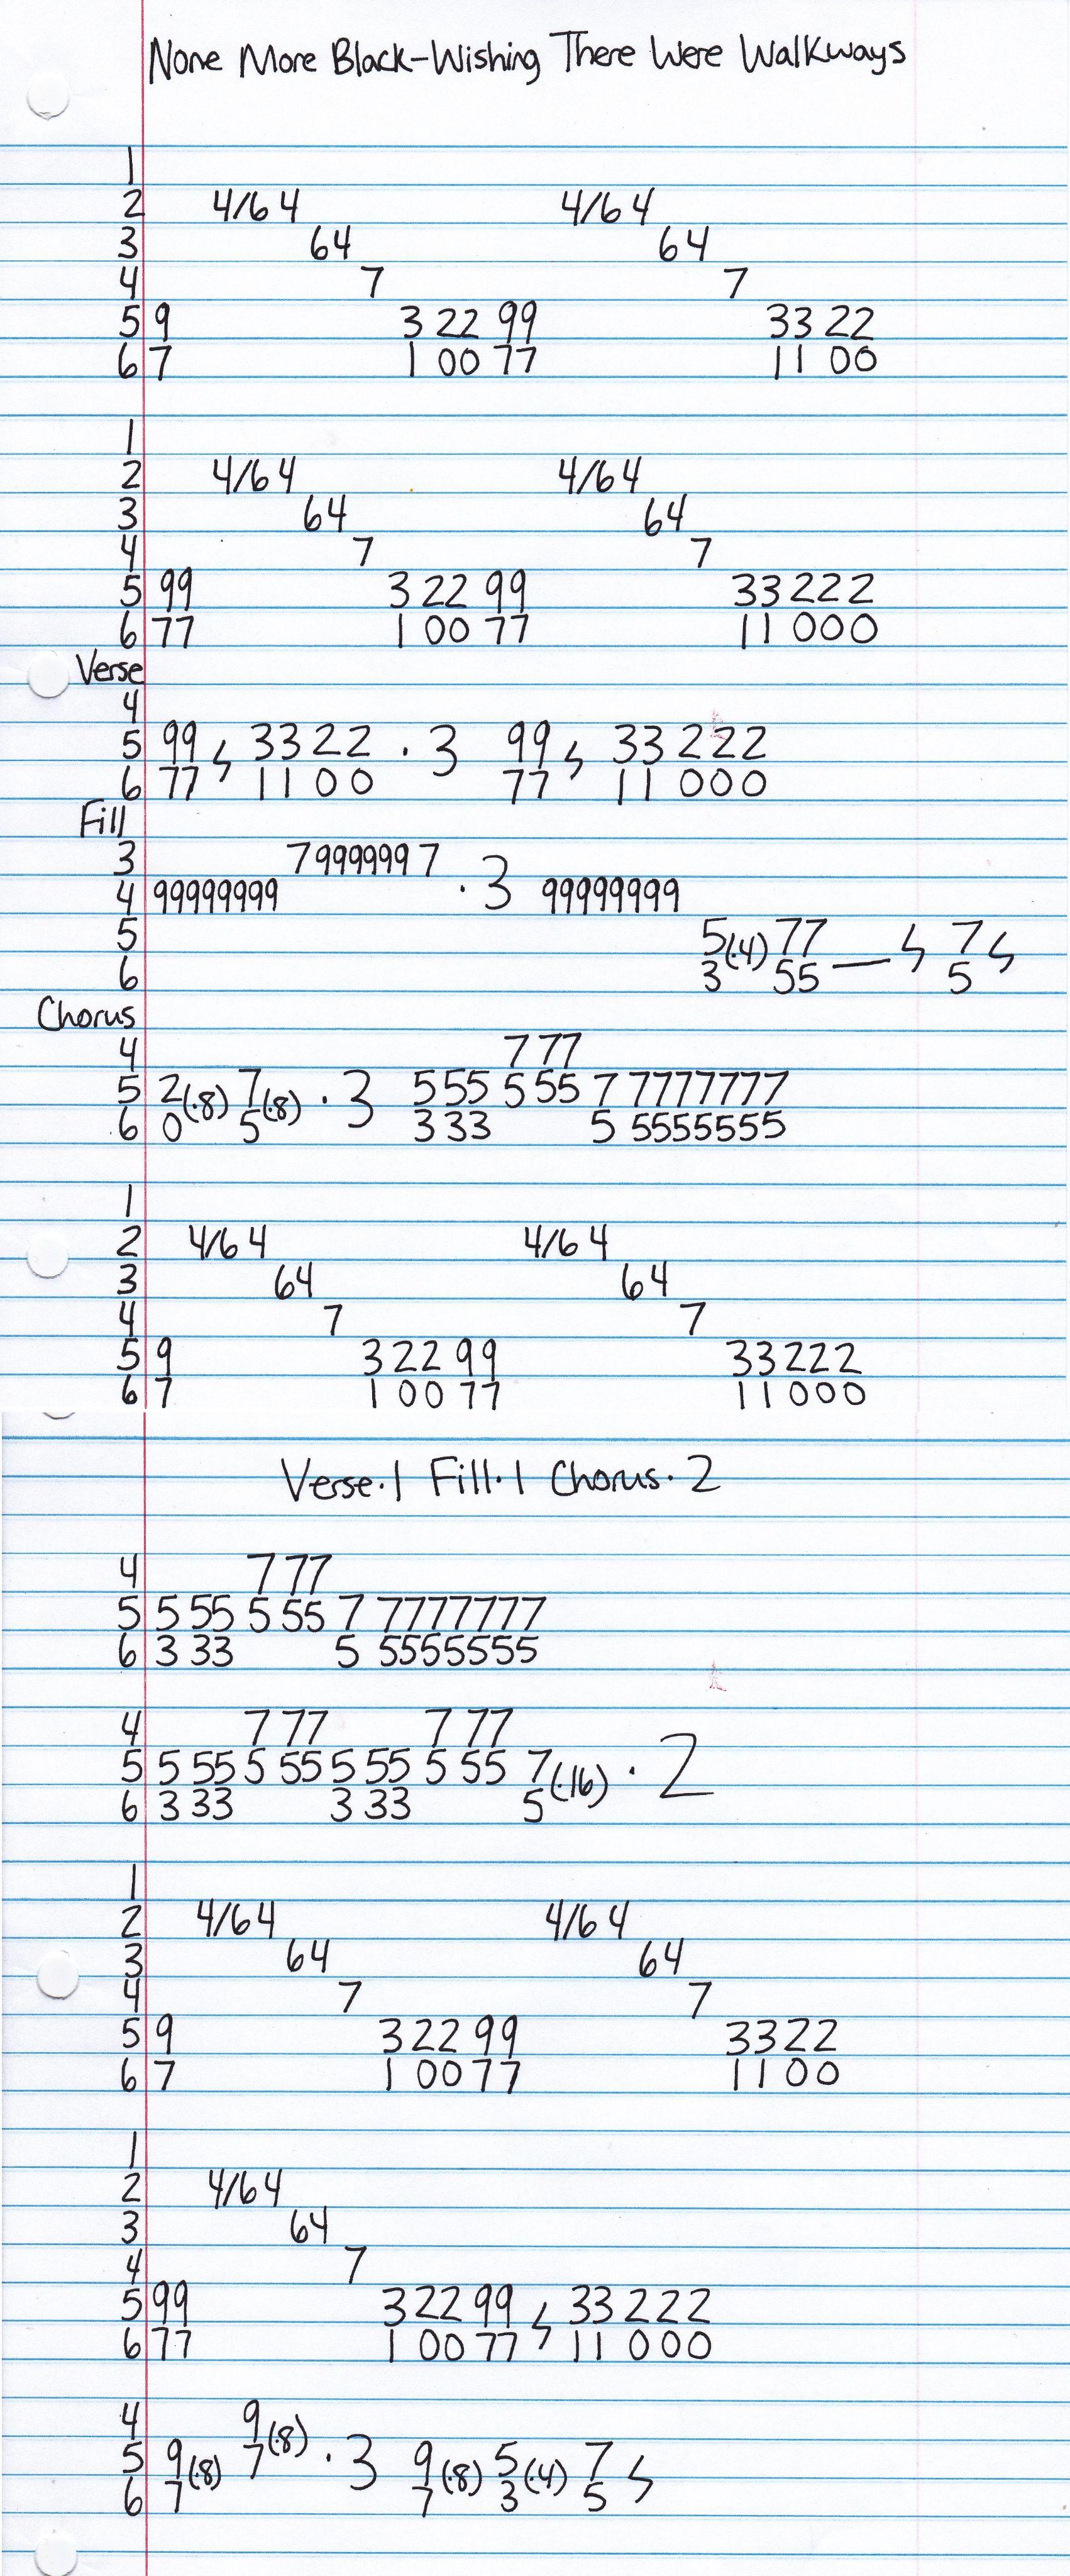 None More Black-Wishing There Were Walkways
1
2 4/64 4/64
3 64 64
4 7 7
5 9 3 22 99 33 22
6 7 1 00 77 11 00
1
2 4/64 4/64
3 64 64
4 7 7
5 99 3 22 99 33 222
6 77 1 00 77 11 000
Verse
4
5 99 ϟ 33 22 · 3 99 ϟ 33 222
6 77 11 00 77 11 000
Fill
3 79999997
4 99999999 · 3 99999999
5 5(·4) 77 — ϟ 7 ϟ
6 3 55 5
Chorus
4 7 77
5 2(·8) 7(·8) · 3 5 55 5 55 7 7777777
6 0 5 3 33 5 5555555
1
2 4/64 4/64
3 64 64
4 7 7
5 9 3 22 99 33 222
6 7 1 00 77 11 000
Verse·1 Fill·1 Chorus·2
4 7 77
5 5 55 5 55 7 7777777
6 3 33 5 5555555
4 7 77 7 77
5 5 55 5 55 5 55 5 55 7(·16) · 2
6 3 33 3 33 5
1
2 4/64 4/64
3 64 64
4 7 7
5 9 3 22 99 33 22
6 7 1 00 77 11 00
1
2 4/64
3 64
4 7
5 99 3 22 99 ϟ 33 222
6 77 1 00 77 11 000
4 9(·8)
5 9(·8) 7 · 3 9(·8) 5(·4) 7 ϟ
6 7 7 3 5